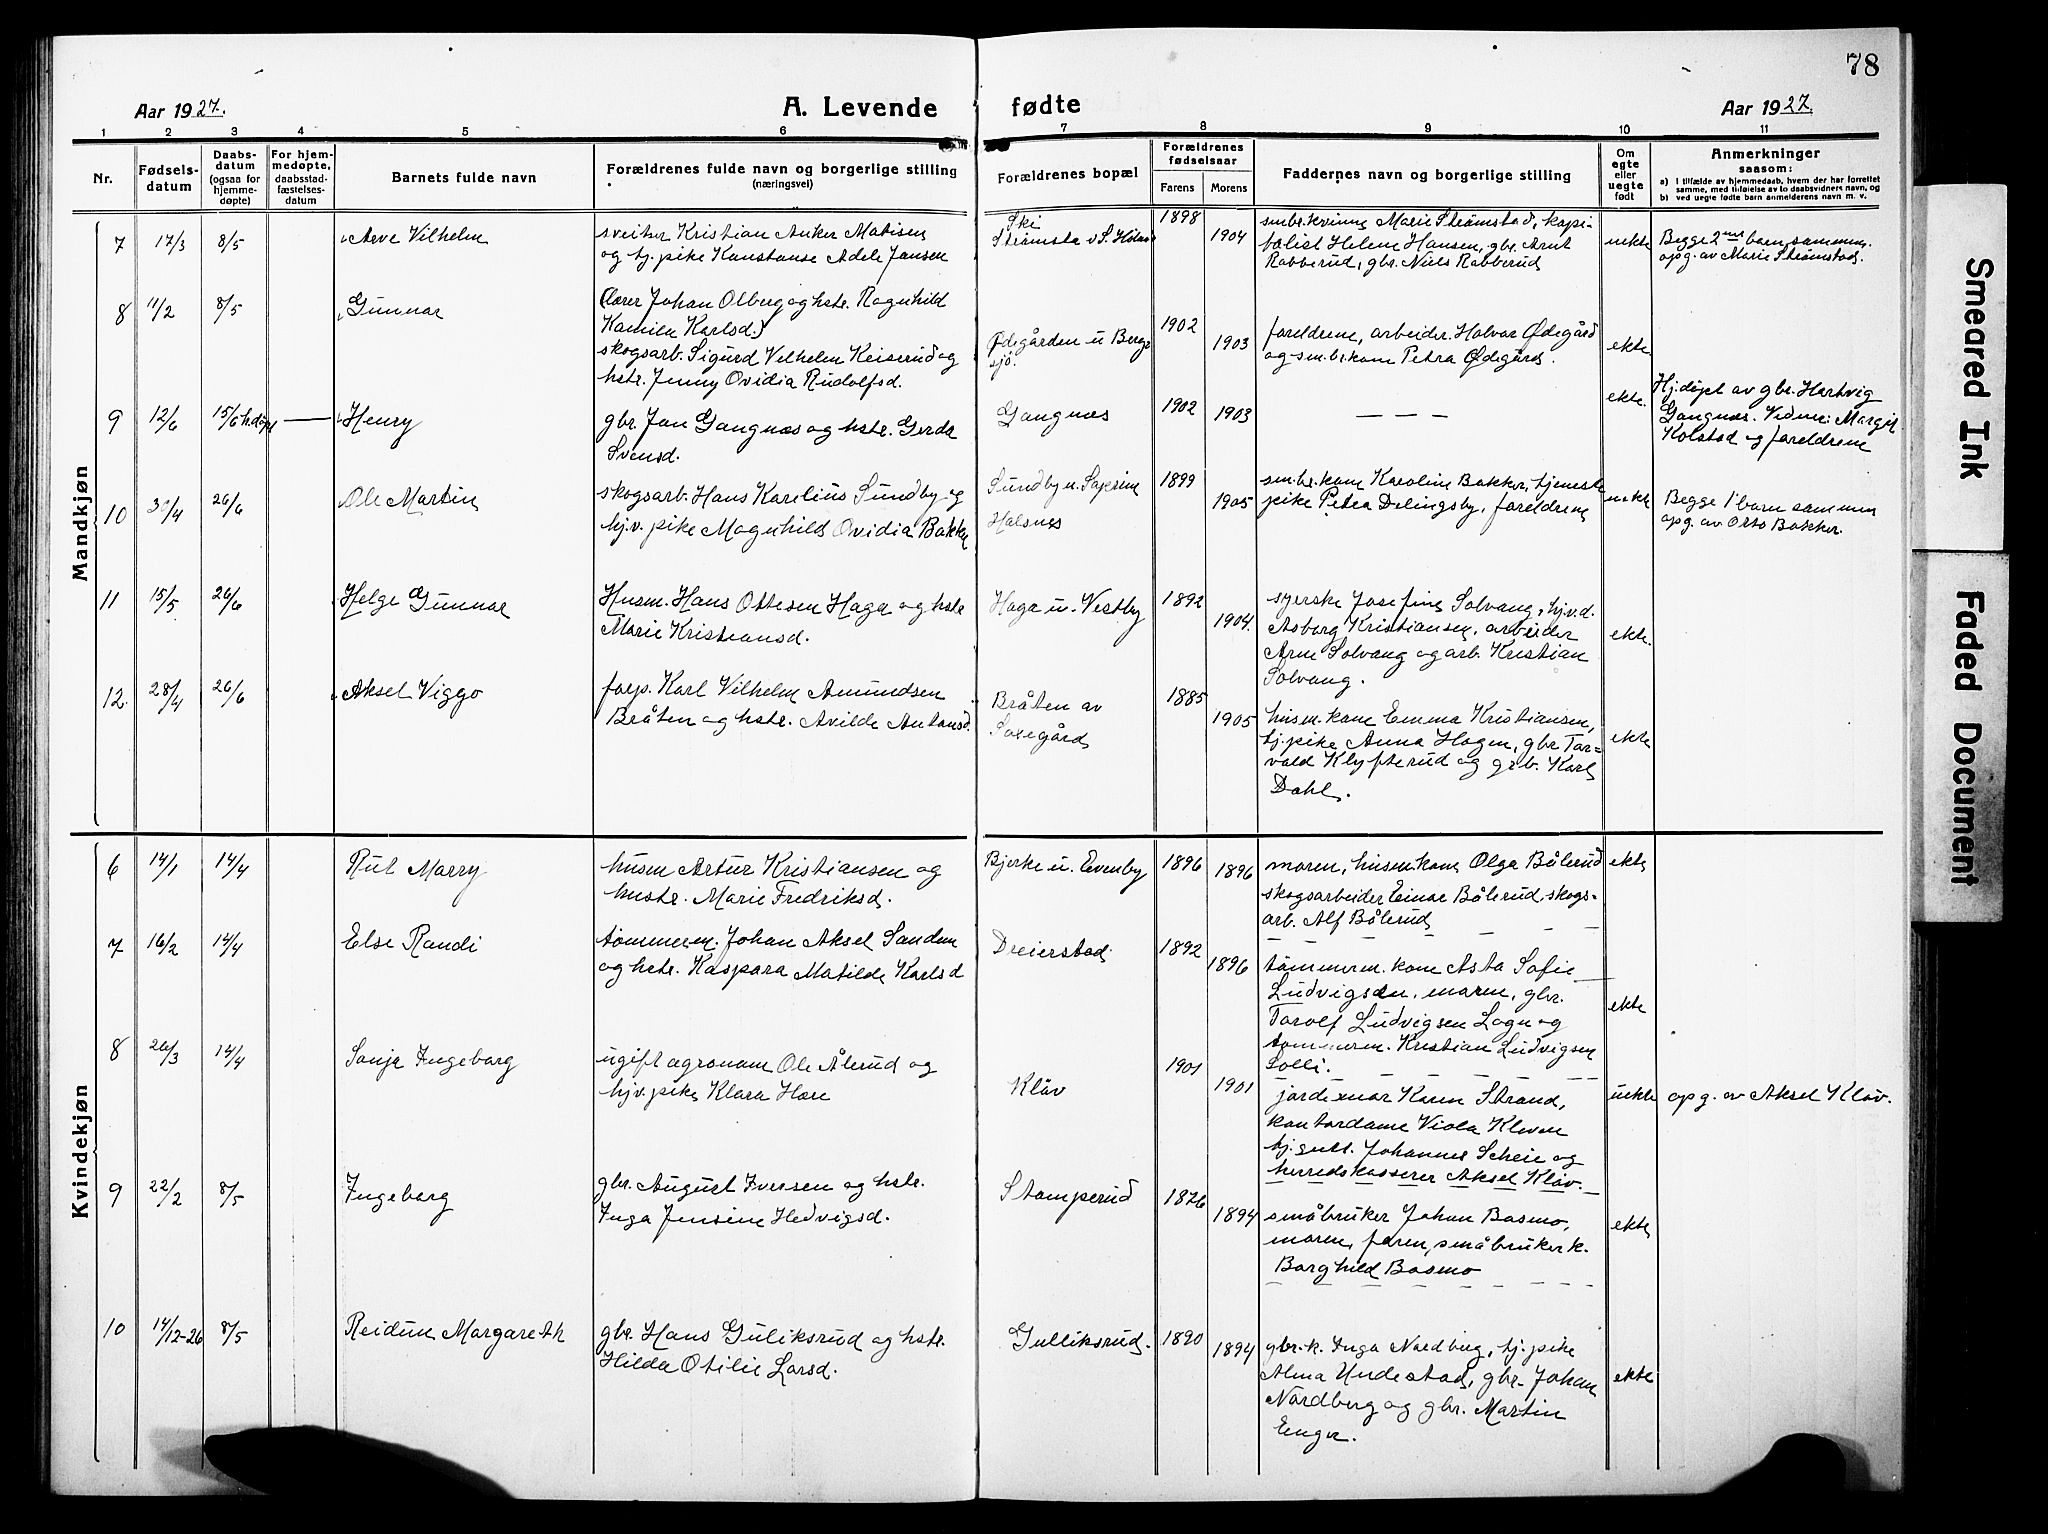 78
Aar 1927.
A. Levende fødte
Aar 1927.
1 2 3 4 5 6 7 8 9 10 11
Nr.
Fødsels-
datum
Daabs-
datum
(ogsaa for
hjemme-
døpte)
For hjem-
medøpte,
daabsstad-
fæstelses-
datum
Barnets fulde navn
Forældrenes fulde navn og borgerlige stilling
(næringsvei)
Forældrenes bopæl
Forældrenes
fødselsaar
Farens Morens
Faddernes navn og borgerlige stilling
Om
egte
eller
uegte
født
Anmerkninger
saasom:
a) I tilfælde av hjemmedaab, hvem der har forrettet
samme, med tilføielse av to daabsvidners navn, og
b) ved uegte fødte barn anmelderens navn m. v.
Mandkjøn
7 17/3 8/5 Arve Vilhelm
sveitser Kristian Anker Matisen
og tj. pike Konstanse Adele Jansen
Ski
1898 1904
sm.br.kvinne Marie Strømstad, kapi-
talist Helene Hansen, gbr. Arnt
Rabberud, gbr. Niels Rabberud
uekte
Begge 2net barn sammen.
opg. av Marie Strømstad.
8 11/2 8/5 Gunnar
(lærer Johan Olberg og hstr. Ragnhild
Kamilla Karlsd.)
skogsarb. Sigurd Vilhelm Keiserud og
hstr. Jenny Ovidia Rudolfsd.
Ødegården u Berg-
sjö.
1902 1903
foreldrene, arbeider Halvor Ødegård
og sm.br.kone Petra Ødegård.
ekte
9 12/6 15/6 hj.døpt — Henry
gbr. Jan Gangnæs og hstr. Gerda
Svensd.
Gangnæs
1902 1903
— — —
ekte.
Hj.døpt av gbr. Hartvig
Gangnæs. Vidner: Margit
Kolstad og foreldrene
10 30/4 26/6 Ole Martin
skogsarb. Hans Karelius Sundby og
hjv. pike Magnhild Ovidia Bakke
Sundby u.
Halsnes
1899 1905
sm.br.kone Karoline Bakker, tjeneste
pike Petra Delingsby, foreldrene
uekte
Begge 1' barn sammen
opg. av Otto Bakker.
11 15/5 26/6 Helge Gunnar
Husm. Hans Ottesen Haga og hstr
Marie Kristiansd.
Haga u. Vestby
1892 1904.
syerske Josefine Solvang, hjv.d.
Asborg Kristiansen, arbeider
Arne Solvang og arb. Kristian
Solvang.
ekte.
12. 28/4 26/6 Aksel Viggo
forp. Karl Vilhelm Amundsen
Bråten og hstr. Avilde Antonsd.
Bråten av
Saxegård
1885 1905
husm.kone Emma Kristiansen,
tj. pike Anna Hagen, gbr Tor-
vald Klypterud og grb. Karl
Dahl.
ekte
Kvindekjøn
6 14/1 14/4 Rut Marry
husm Artur Kristiansen og
hustr. Marie Fredriksd.
Bjerke u. Evenby
1896 1896
moren, husm.kone Olga Bålerud
skogsarbeider Einar Bålerud, skogs-
arb. Alf Bålerud
ekte
7 16/2 14/4 Else Randi
tømmerm. Johan Aksel Sanden
og hstr. Kaspara Matilde Karlsd
Dreierstad
1892 1896
tömmerm. kone Asta Sofie
Ludvigsen. moren, gbr.
Torolf Ludvigsen Logn og
tömmerm. Kristian Ludvigsen
Solli.
ekte
8 26/3 14/4 Sonja Ingeborg
ugift agronom Ole Ålerud og
hjv. pike Klara Hare
Kläv
1901 1901
jordemor Karen Strand,
kontordame Viola Kleven
tj.gutt. Johannes Scheie og
herredskasserer Aksel Kläv.
uekte
opg. av Aksel Kläv.
9 22/2 8/5 Ingeborg
gbr. August Iversen og hstr.
Inga Jensine Hedvigsd.
Stamperud
1876 1894
småbruker Johan Basmo,
moren, faren, småbruker k.
Borghild Basmo
ekte
10 14/12-26 8/5 Reidun Margareth
gbr. Hans Guliksrud og hstr.
Hilda Otilie Larsd.
Gulliksrud.
1890 1894
gbr.k. Inga Nordberg, tj. pike
Alma Undestad, gbr. Johan
Nordberg og gbr. Martin
Enger.
ekte
Smeared Ink
Faded Document